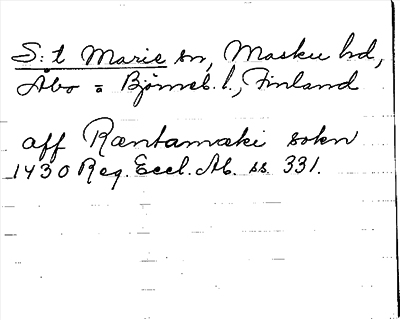 S:t Marie sn, Masku hd,
Åbo = Björneb. l., Finland
aff Ræntamæki sokn
1430 Reg. Eccl. Ab. ss. 331.